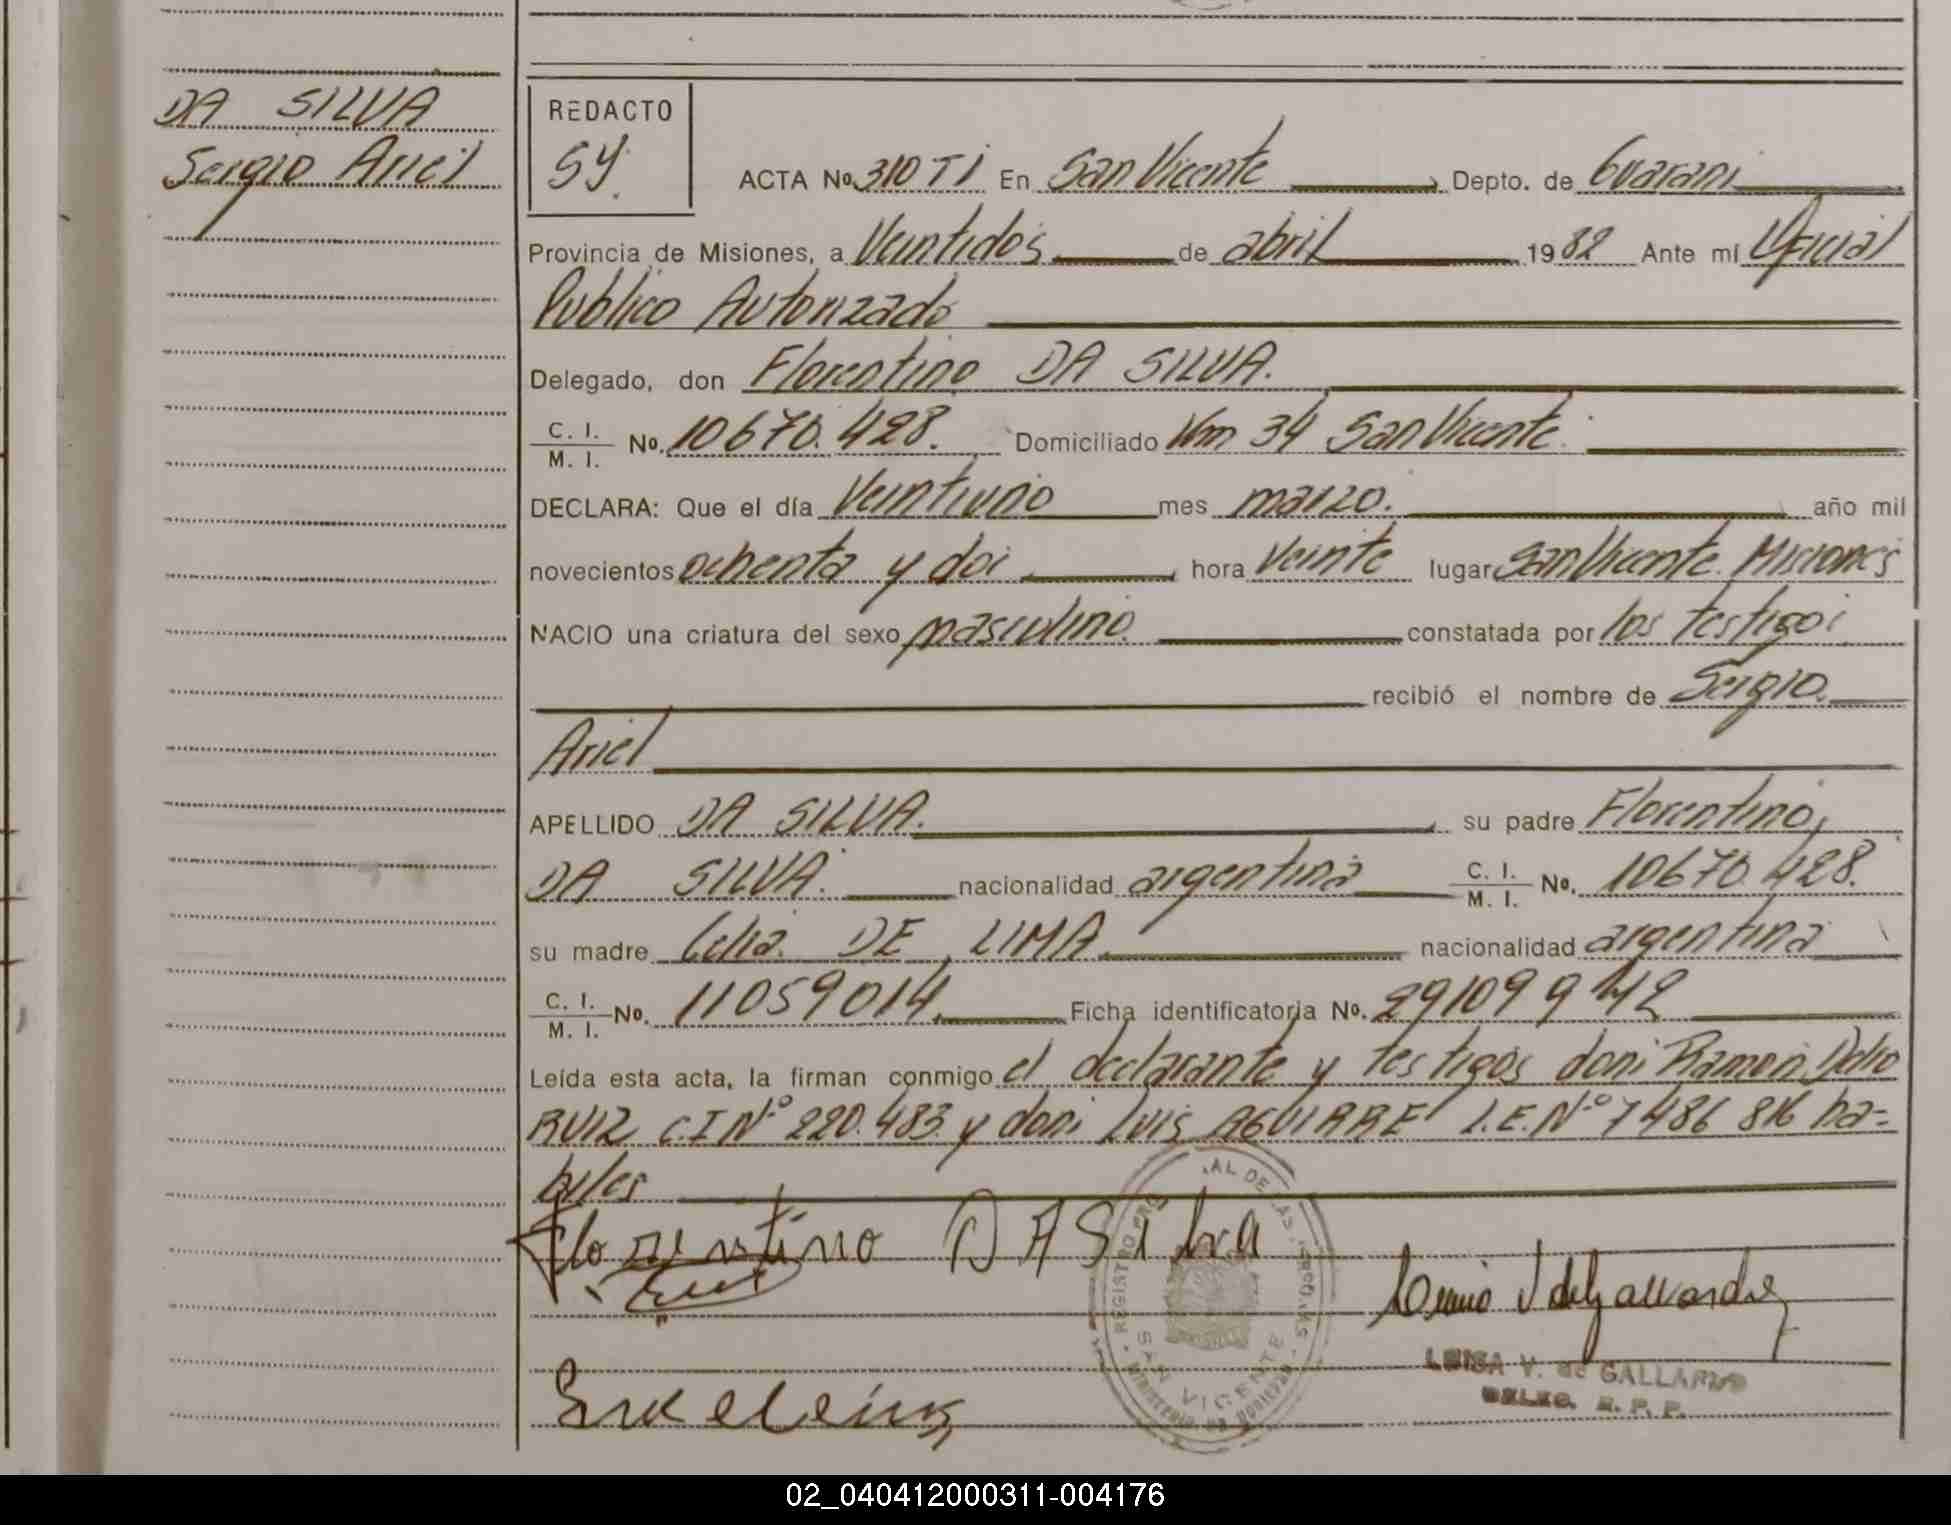 DA SILVA
Sergio Ariel
REDACTO
SY.
ACTA No. 310 TI En San Vicente Depto. de Guarani
Provincia de Misiones, a Veintidos de abril 1982 Ante mí Oficial
Publico Autorizado
Delegado, don Florentino DA SILVA.
C. I. / M. I. No. 10670.428. Domiciliado Km 34 San Vicente.
DECLARA: Que el día Veintiuno mes marzo. año mil
novecientos ochenta y dos hora Veinte lugar San Vicente. Misiones
NACIO una criatura del sexo masculino. constatada por los testigos
recibió el nombre de Sergio.
Ariel
APELLIDO DA SILVA. su padre Florentino
DA SILVA. nacionalidad argentina C. I. / M. I. No. 10670.428.
su madre Celia. DE LIMA nacionalidad argentina
C. I. / M. I. No. 11059014. Ficha identificatoria No. 291099
Leída esta acta, la firman conmigo el declarante y testigos doni Ramon Delio
RUIZ C.I Nº 220.483 y doni Luis AGUIRRE L.E. Nº 7486 816 ha=
biles
Florentino DA Silva
REGISTRO SAN VICENTE
LUISA V. de GALLARDO
DELEG. R. P. P.
02_040412000311-004176